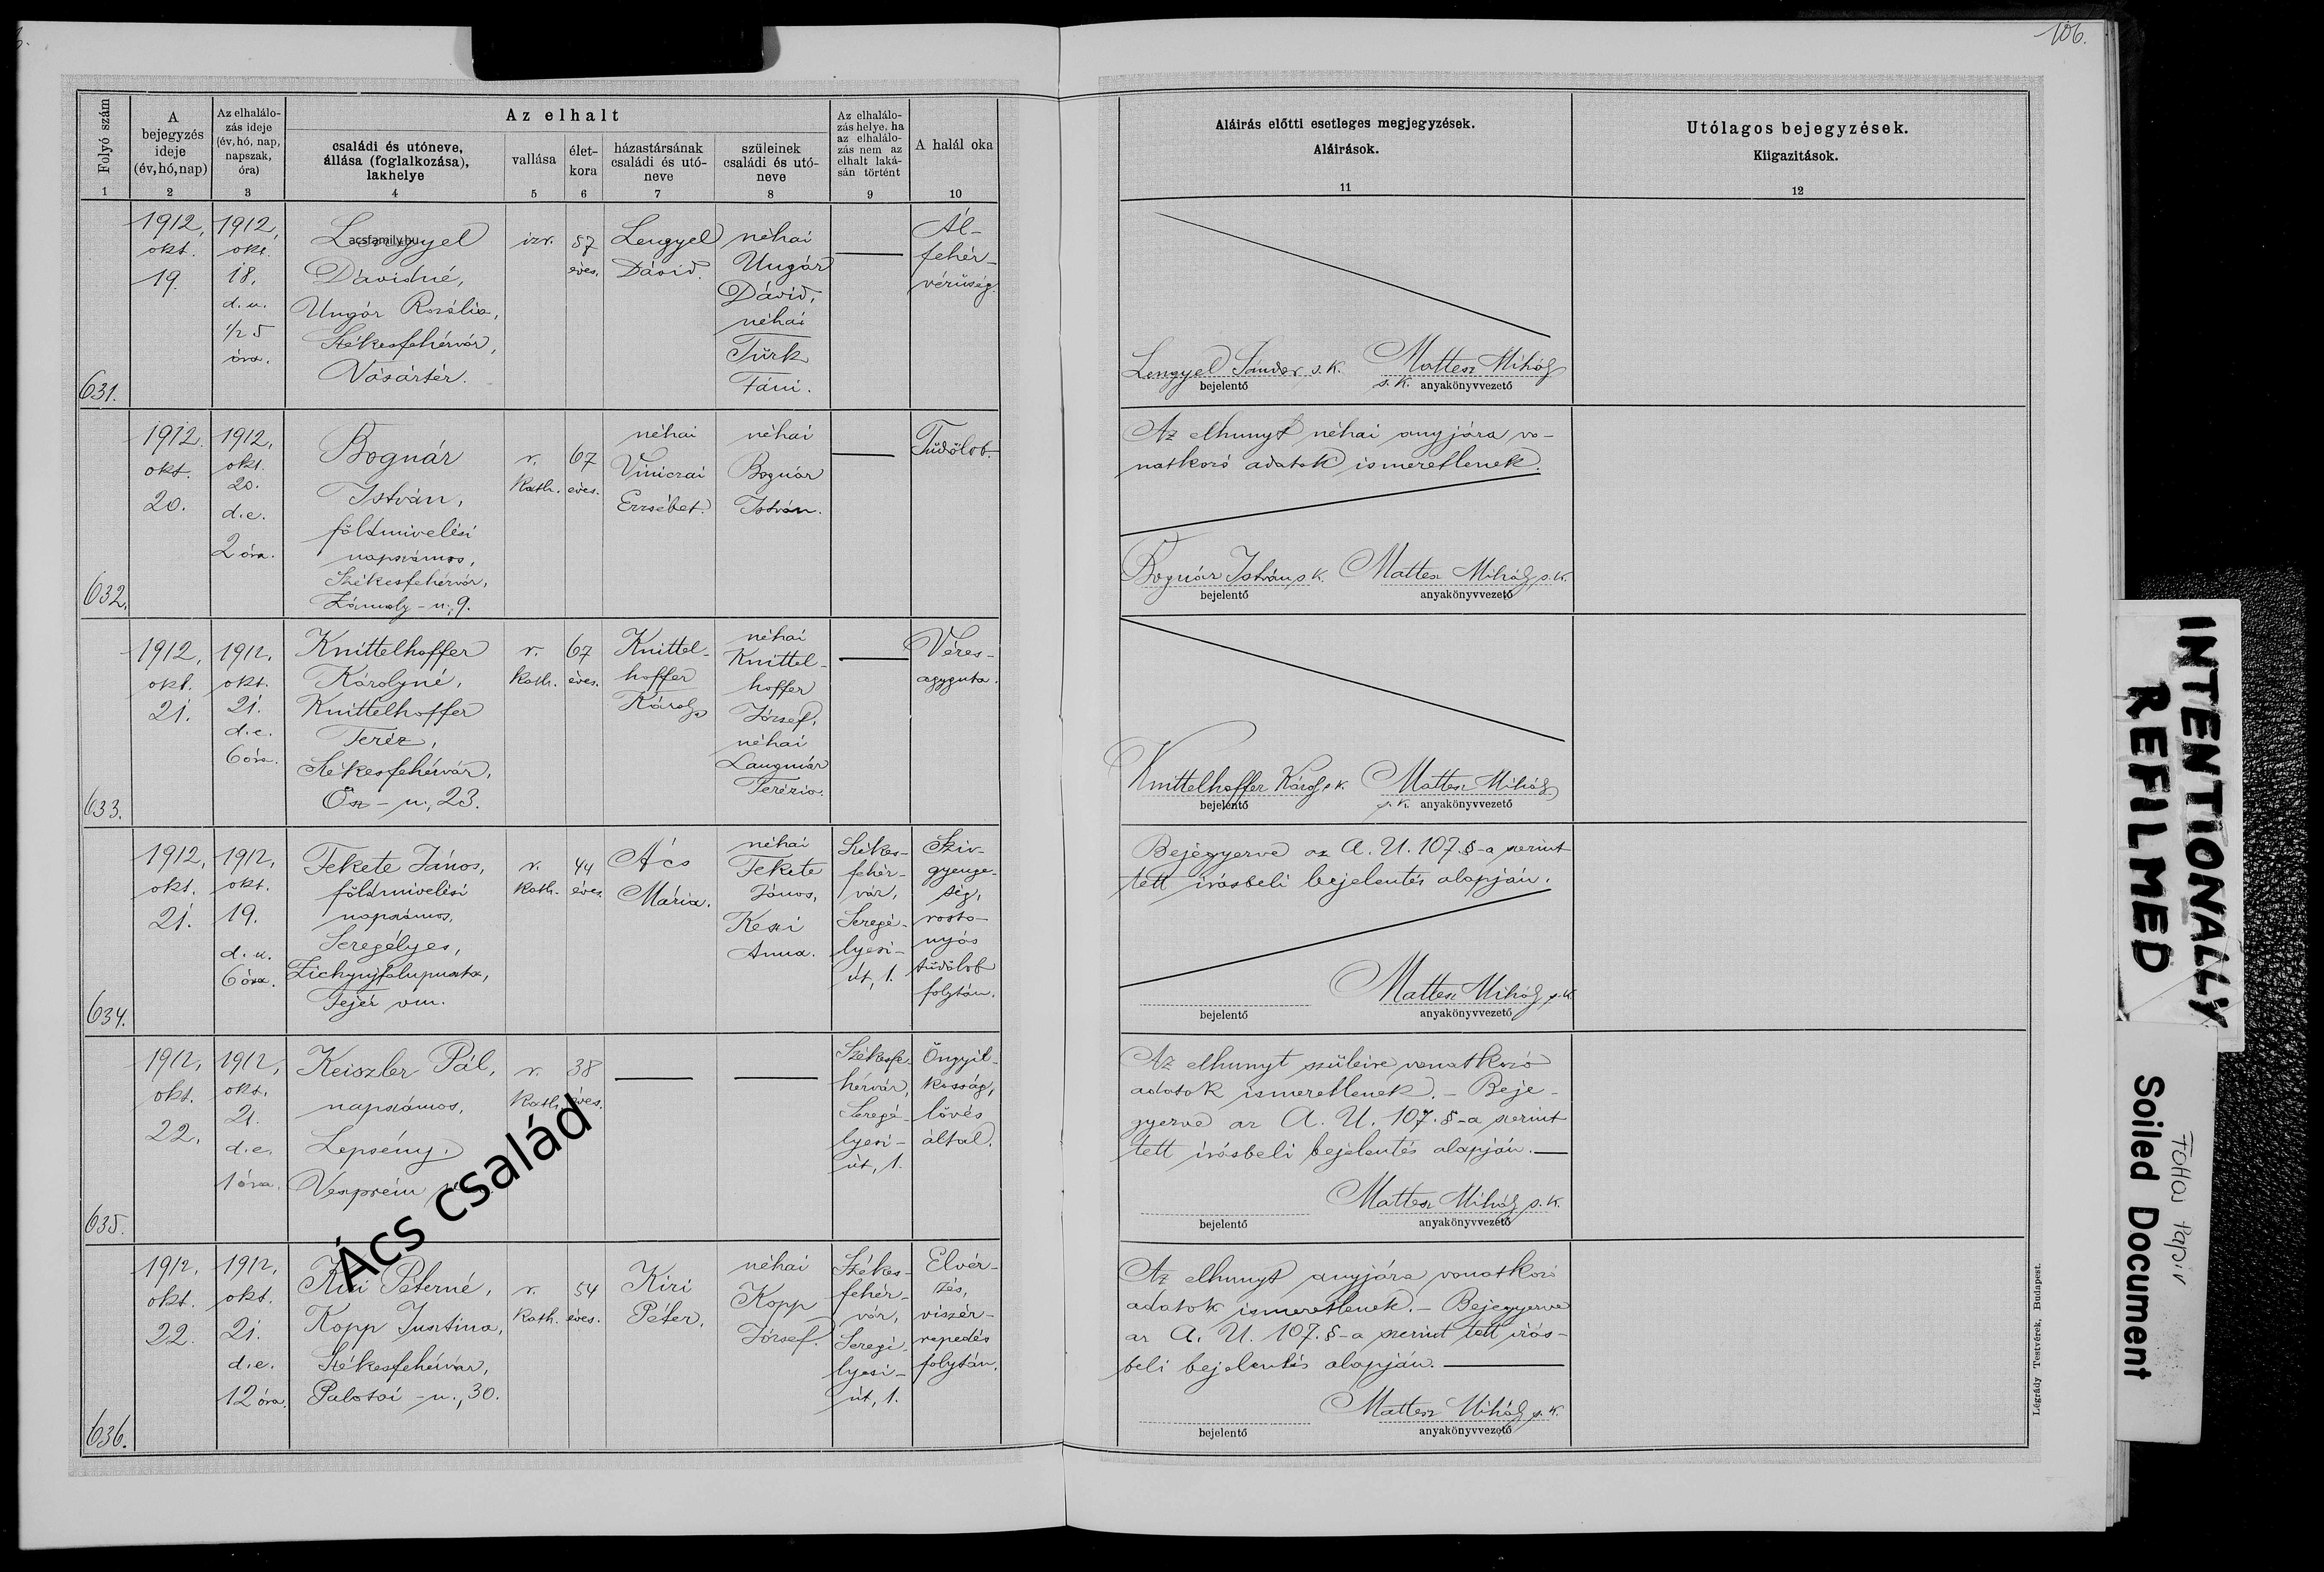 106.
Folyó szám
A bejegyzés ideje (év, hó, nap)
Az elhalálo-
zás ideje
(év, hó, nap,
napszak,
óra)
Az elhalt
családi és utóneve,
állása (foglalkozása),
lakhelye
vallása
élet-
kora
házastársának
családi és utó-
neve
szüleinek
családi és utó-
neve
Az elhalálo-
zás helye, ha
az elhalálo-
zás nem az
elhalt laká-
sán történt
A halál oka
1 2 3 4 5 6 7 8 9 10
Aláírás előtti esetleges megjegyzések.
Aláírások.
11
Utólagos bejegyzések.
Kiigazitások.
12
631.
1912,
okt.
19.
1912,
okt.
18.
d. u.
1/2 5
óra.
Lengyel
Dávidné,
Ungár Rozália,
Székesfehérvár,
Vásártér.
izr.
57
éves.
Lengyel
Dávid.
néhai
Ungár
Dávid,
néhai
Türk
Fáni.
Ál-
fehér-
vérüség.
Lengyel Sándor s. k.
bejelentő
Mattesz Mihály
s. k. anyakönyvvezető
632.
1912.
okt.
20.
1912,
okt.
20.
d. e.
2 óra.
Bognár
István,
földmivelési
napszámos,
Székesfehérvár,
Zámoly-u., 9.
r.
kath.
67
éves.
néhai
Viniczai
Erzsébet.
néhai
Bognár
István.
Tüdőlob.
Az elhunyt néhai anyjára vo-
natkozó adatok ismeretlenek.
Bognár István s. k.
bejelentő
Mattesz Mihály s. k.
anyakönyvvezető
633.
1912,
okt.
21.
1912.
okt.
21.
d. e.
6 óra.
Knittelhoffer
Károlyné,
Knittelhoffer
Teréz,
Székesfehérvár,
Ősz-u., 23.
r.
kath.
67
éves.
Knittel-
hoffer
Károly
néhai
Knittel-
hoffer
József,
néhai
Langmár
Terézia.
Véres-
agyguta.
Knittelhoffer Károly s. k.
bejelentő
Mattesz Mihály
s. k. anyakönyvvezető
634.
1912,
okt.
21.
1912,
okt.
19.
d. u.
6 óra.
Fekete János,
földmivelési
napszámos,
Seregélyes,
Zichyujfalupuszta,
Fejér vm.
r.
kath.
44
éves.
Ács
Mária.
néhai
Fekete
János,
Keszi
Anna.
Székes-
fehér-
vár,
Seregé-
lyesi-
út, 1.
Sziv-
gyenge-
ség,
rosto-
nyás
tüdőlob
folytán.
Bejegyezve az A. U. 107. §-a szerint
tett írásbeli bejelentés alapján.
bejelentő
Mattesz Mihály s. k.
anyakönyvvezető
635.
1912,
okt.
22.
1912,
okt.
21.
d. e.
1 óra.
Keiszler Pál,
napszámos,
Lepsény,
Veszprém
r.
kath.
38
éves.
Székesfe-
hérvár,
Seregé-
lyesi-
út, 1.
Öngyil-
kosság,
lövés
által.
Az elhunyt szüleire vonatkozó
adatok ismeretlenek. - Beje-
gyezve az A. U. 107. §-a szerint
tett írásbeli bejelentés alapján.
bejelentő
Mattesz Mihály s. k.
anyakönyvvezető
636.
1912,
okt.
22.
1912,
okt.
21.
d. e.
12 óra.
Kiri Péterné,
Kopp Jusztina,
Székesfehérvár,
Palotai-u., 30.
r.
kath.
54
éves.
Kiri
Péter.
néhai
Kopp
József.
Székes-
fehér-
vár,
Seregé-
lyesi-
út, 1.
Elvér-
zés,
viszér-
repedés
folytán.
Az elhunyt anyjára vonatkozó
adatok ismeretlenek. - Bejegyezve
az A. U. 107. §-a szerint tett irás-
beli bejelentés alapján.
bejelentő
Mattesz Mihály s. k.
anyakönyvvezető
Légrády Testvérek, Budapest.
acsfamily.hu
Ács család
INTENTIONALLY
REFILMED
Soiled Document
Foltos Papir